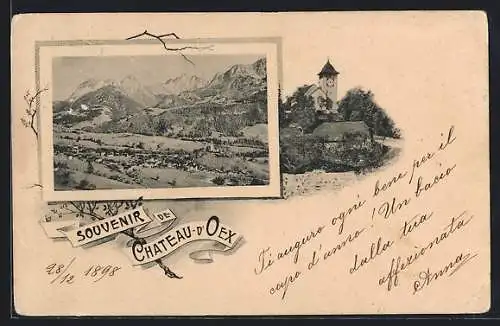 SOUVENIR DE
CHATEAU-D'OEX
28/12 1898
Ti auguro ogni bene per il
capo d'anno! Un bacio
dalla tua
affezionata
Anna